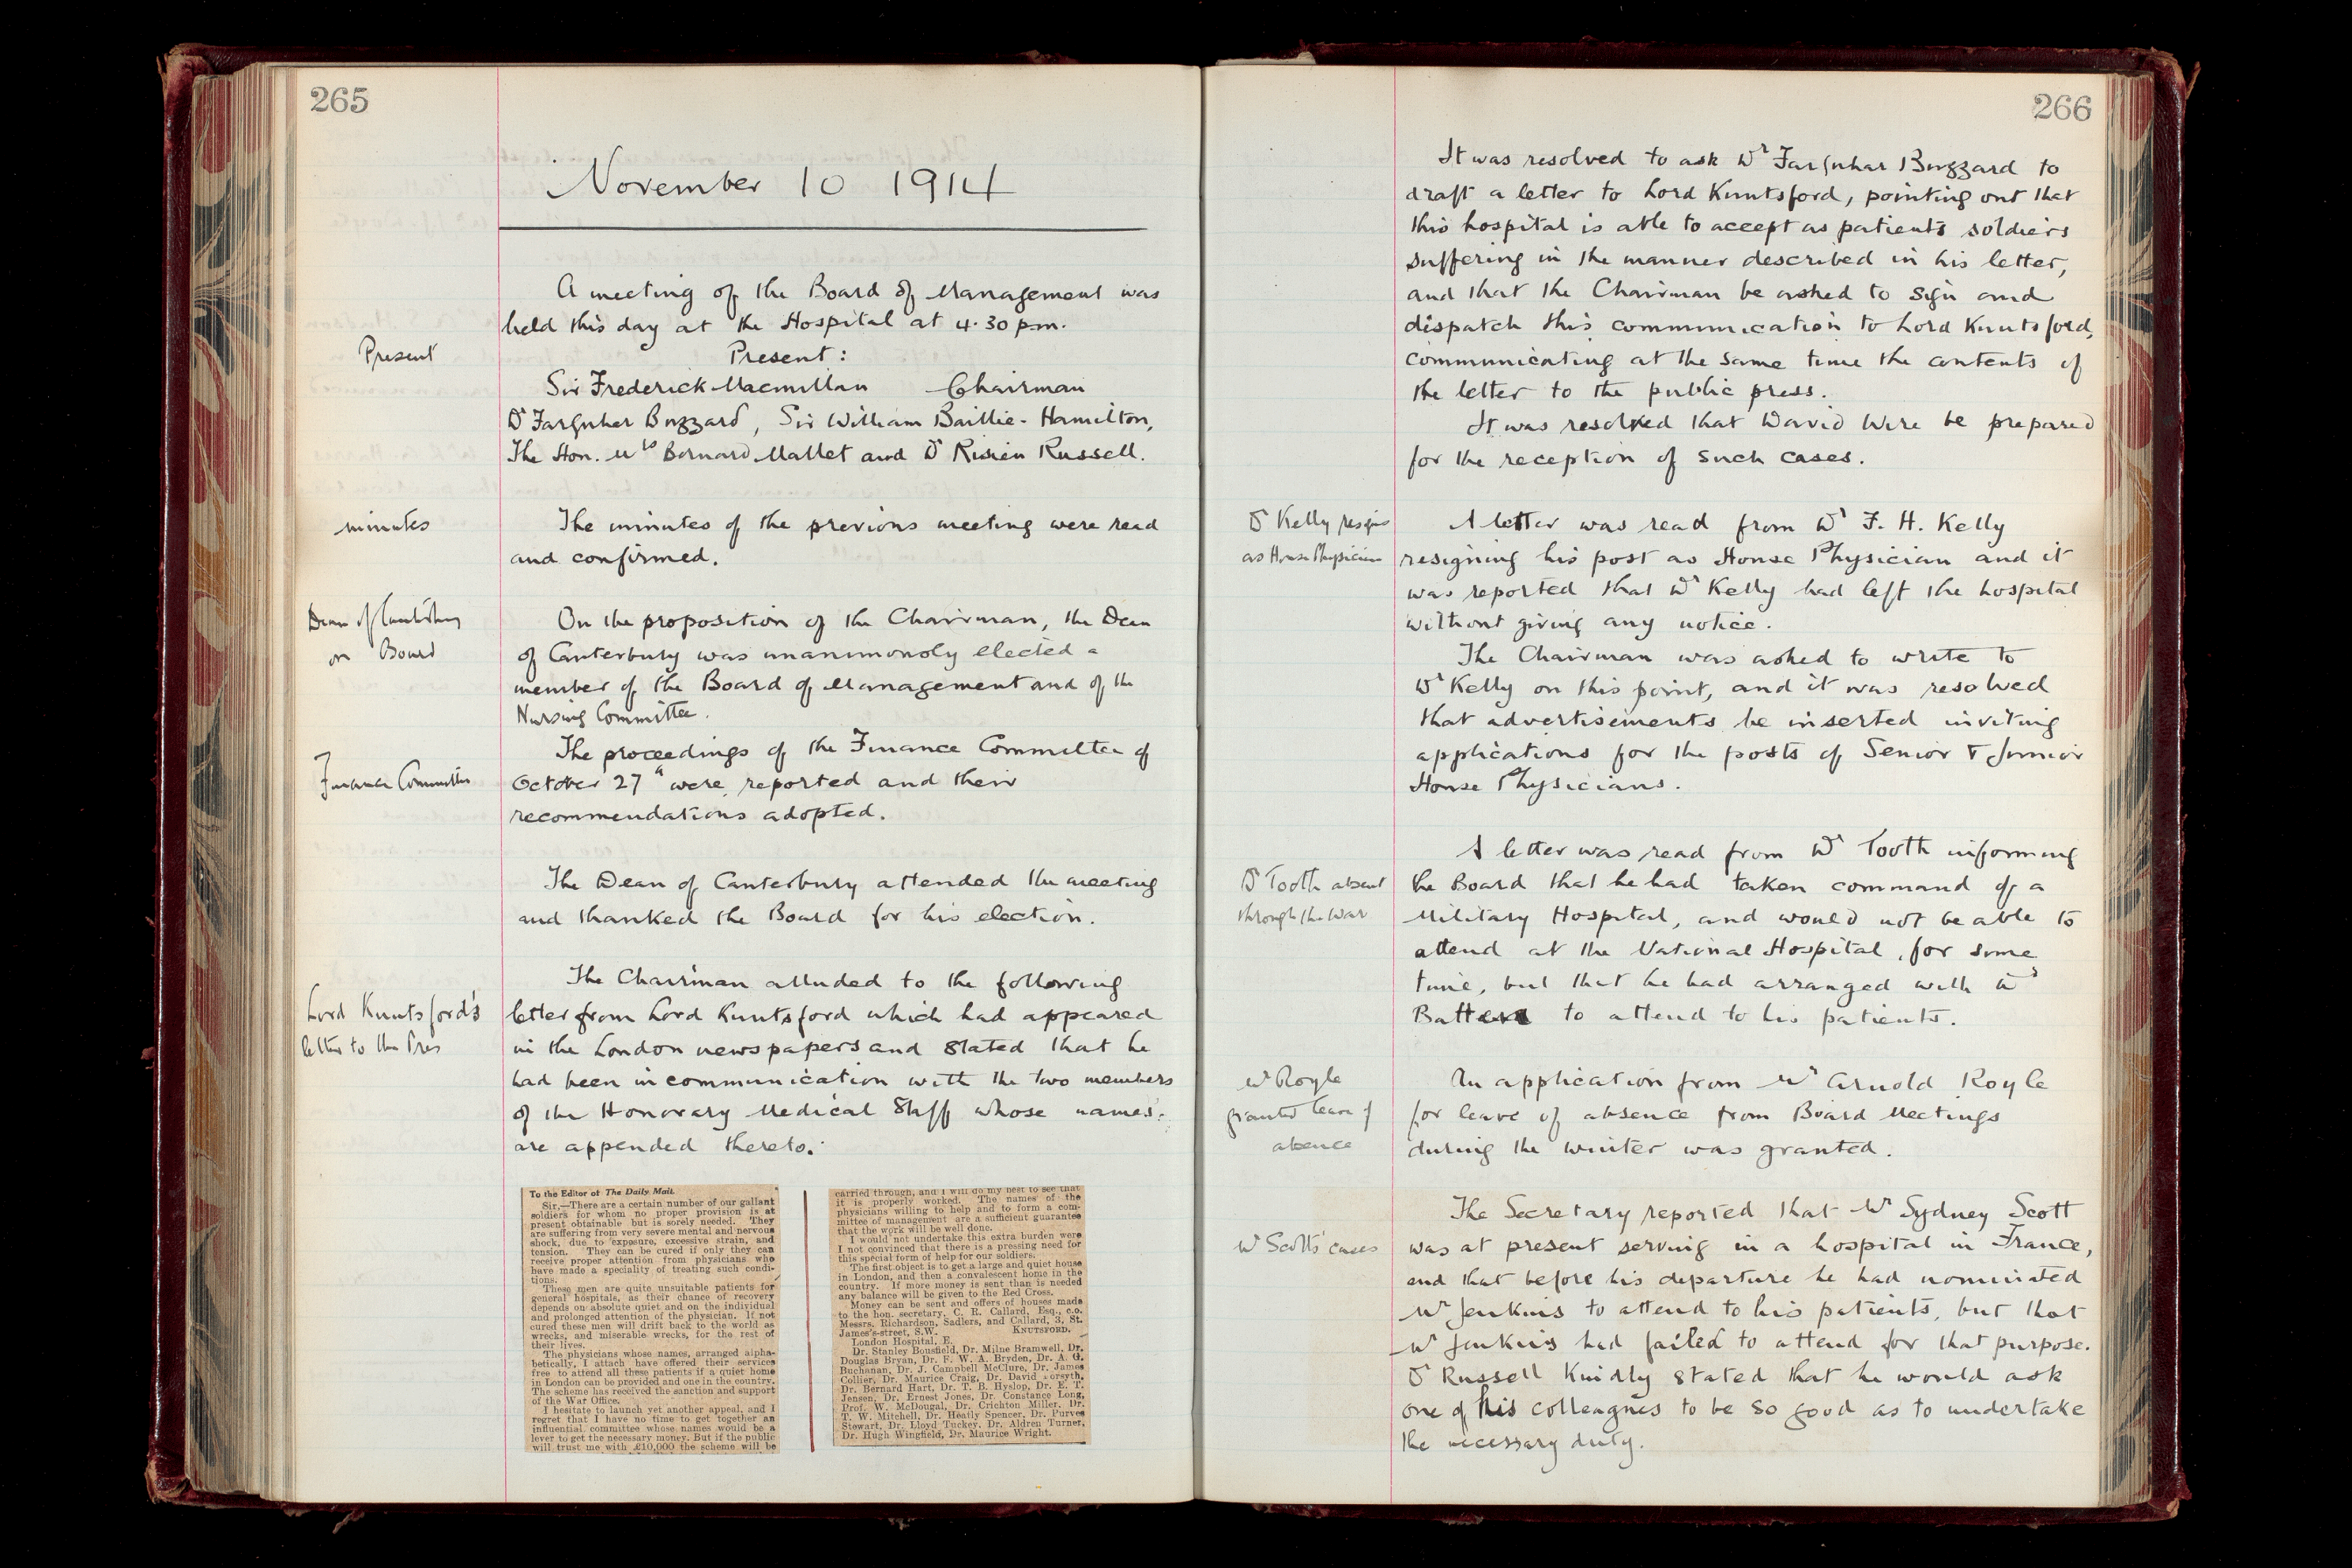 265
November 10 1914
A meeting of the Board of Management was
held this day at the Hospital at 4.30 pm.
Present
Present :
Sir Frederick Macmillan Chairman
Dr Farquhar Buzzard, Sir William Baillie-Hamilton,
The Hon. Mrs Bernard Mallet and Dr Risien Russell.
minutes
The minutes of the previous meeting were read
and confirmed.
Dean of Canterbury
on Board
On the proposition of the Chairman, the Dean
of Canterbury was unanimously elected a
member of the Board of Management and of the
Nursing Committee.
Finance Committee
The proceedings of the Finance Committee of
October 27th were reported and their
recommendations adopted.
The Dean of Canterbury attended the meeting
and thanked the Board for his election.
Lord Knutsford's
letter to the Press
The Chairman alluded to the following
letter from Lord Knutsford which had appeared
in the London newspapers and stated that he
had been in communication with the two members
of the Honorary Medical Staff whose names
are appended thereto.
To the Editor of The Daily Mail.
Sir,—There are a certain number of our gallant
soldiers for whom no proper provision is at
present obtainable but is sorely needed. They
are suffering from very severe mental and nervous
shock, due to exposure, excessive strain, and
tension. They can be cured if only they can
receive proper attention from physicians who
have made a speciality of treating such condi-
tions.
These men are quite unsuitable patients for
general hospitals, as their chance of recovery
depends on absolute quiet and on the individual
and prolonged attention of the physician. If not
cured these men will drift back to the world as
wrecks, and miserable wrecks, for the rest of
their lives.
The physicians whose names, arranged alpha-
betically, I attach have offered their services
free to attend all these patients if a quiet home
in London can be provided and one in the country.
The scheme has received the sanction and support
of the War Office.
I hesitate to launch yet another appeal, and I
regret that I have no time to get together an
influential committee whose names would be a
lever to get the necessary money. But if the public
will trust me with £10,000 the scheme will be
carried through, and I will do my best to see that
it is properly worked. The names of the
physicians willing to help and to form a com-
mittee of management are a sufficient guarantee
that the work will be well done.
I would not undertake this extra burden were
I not convinced that there is a pressing need for
this special form of help for our soldiers.
The first object is to get a large and quiet house
in London, and then a convalescent home in the
country. If more money is sent than is needed
any balance will be given to the Red Cross.
Money can be sent and offers of houses made
to the hon. secretary, C. R. Callard, Esq., c.o.
Messrs. Richardson, Sadlers, and Callard, 3, St.
James's-street, S.W. KNUTSFORD.
London Hospital, E.
Dr. Stanley Bousfield, Dr. Milne Bramwell, Dr.
Douglas Bryan, Dr. F. W. A. Bryden, Dr. A. G.
Buchanan, Dr. J. Campbell McClure, Dr. James
Collier, Dr. Maurice Craig, Dr. David Forsyth,
Dr. Bernard Hart, Dr. T. B. Hyslop, Dr. E. T.
Jensen, Dr. Ernest Jones, Dr. Constance Long,
Prof. W. McDougal, Dr. Crichton Miller, Dr.
T. W. Mitchell, Dr. Heatly Spencer, Dr. Purves
Stewart, Dr. Lloyd Tuckey, Dr. Aldren Turner,
Dr. Hugh Wingfield, Dr. Maurice Wright.
266
It was resolved to ask Dr Farquhar Buzzard to
draft a letter to Lord Knutsford, pointing out that
this hospital is able to accept as patients soldiers
suffering in the manner described in his letter,
and that the Chairman be asked to sign and
dispatch this communication to Lord Knutsford,
communicating at the same time the contents of
the letter to the public press.
It was resolved that David Wire be prepared
for the reception of such cases.
Dr Kelly resigns
as House Physician
A letter was read from Dr F. H. Kelly
resigning his post as House Physician and it
was reported that Dr Kelly had left the hospital
without giving any notice.
The Chairman was asked to write to
Dr Kelly on this point, and it was resolved
that advertisements be inserted inviting
applications for the posts of Senior & Junior
House Physicians.
Dr Tooth absent
through the War
A letter was read from Dr Tooth informing
the Board that he had taken command of a
Military Hospital, and would not be able to
attend at the National Hospital, for some
time, but that he had arranged with Dr
Batten to attend to his patients.
Mr Royle
granted leave of
absence
An application from Mr Arnold Royle
for leave of absence from Board Meetings
during the winter was granted.
Mr Scott's cases
The Secretary reported that Mr Sydney Scott
was at present serving in a hospital in France,
and that before his departure he had nominated
Mr Jenkins to attend to his patients, but that
Mr Jenkins had failed to attend for that purpose.
Dr Russell kindly stated that he would ask
one of his colleagues to be so good as to undertake
the necessary duty.